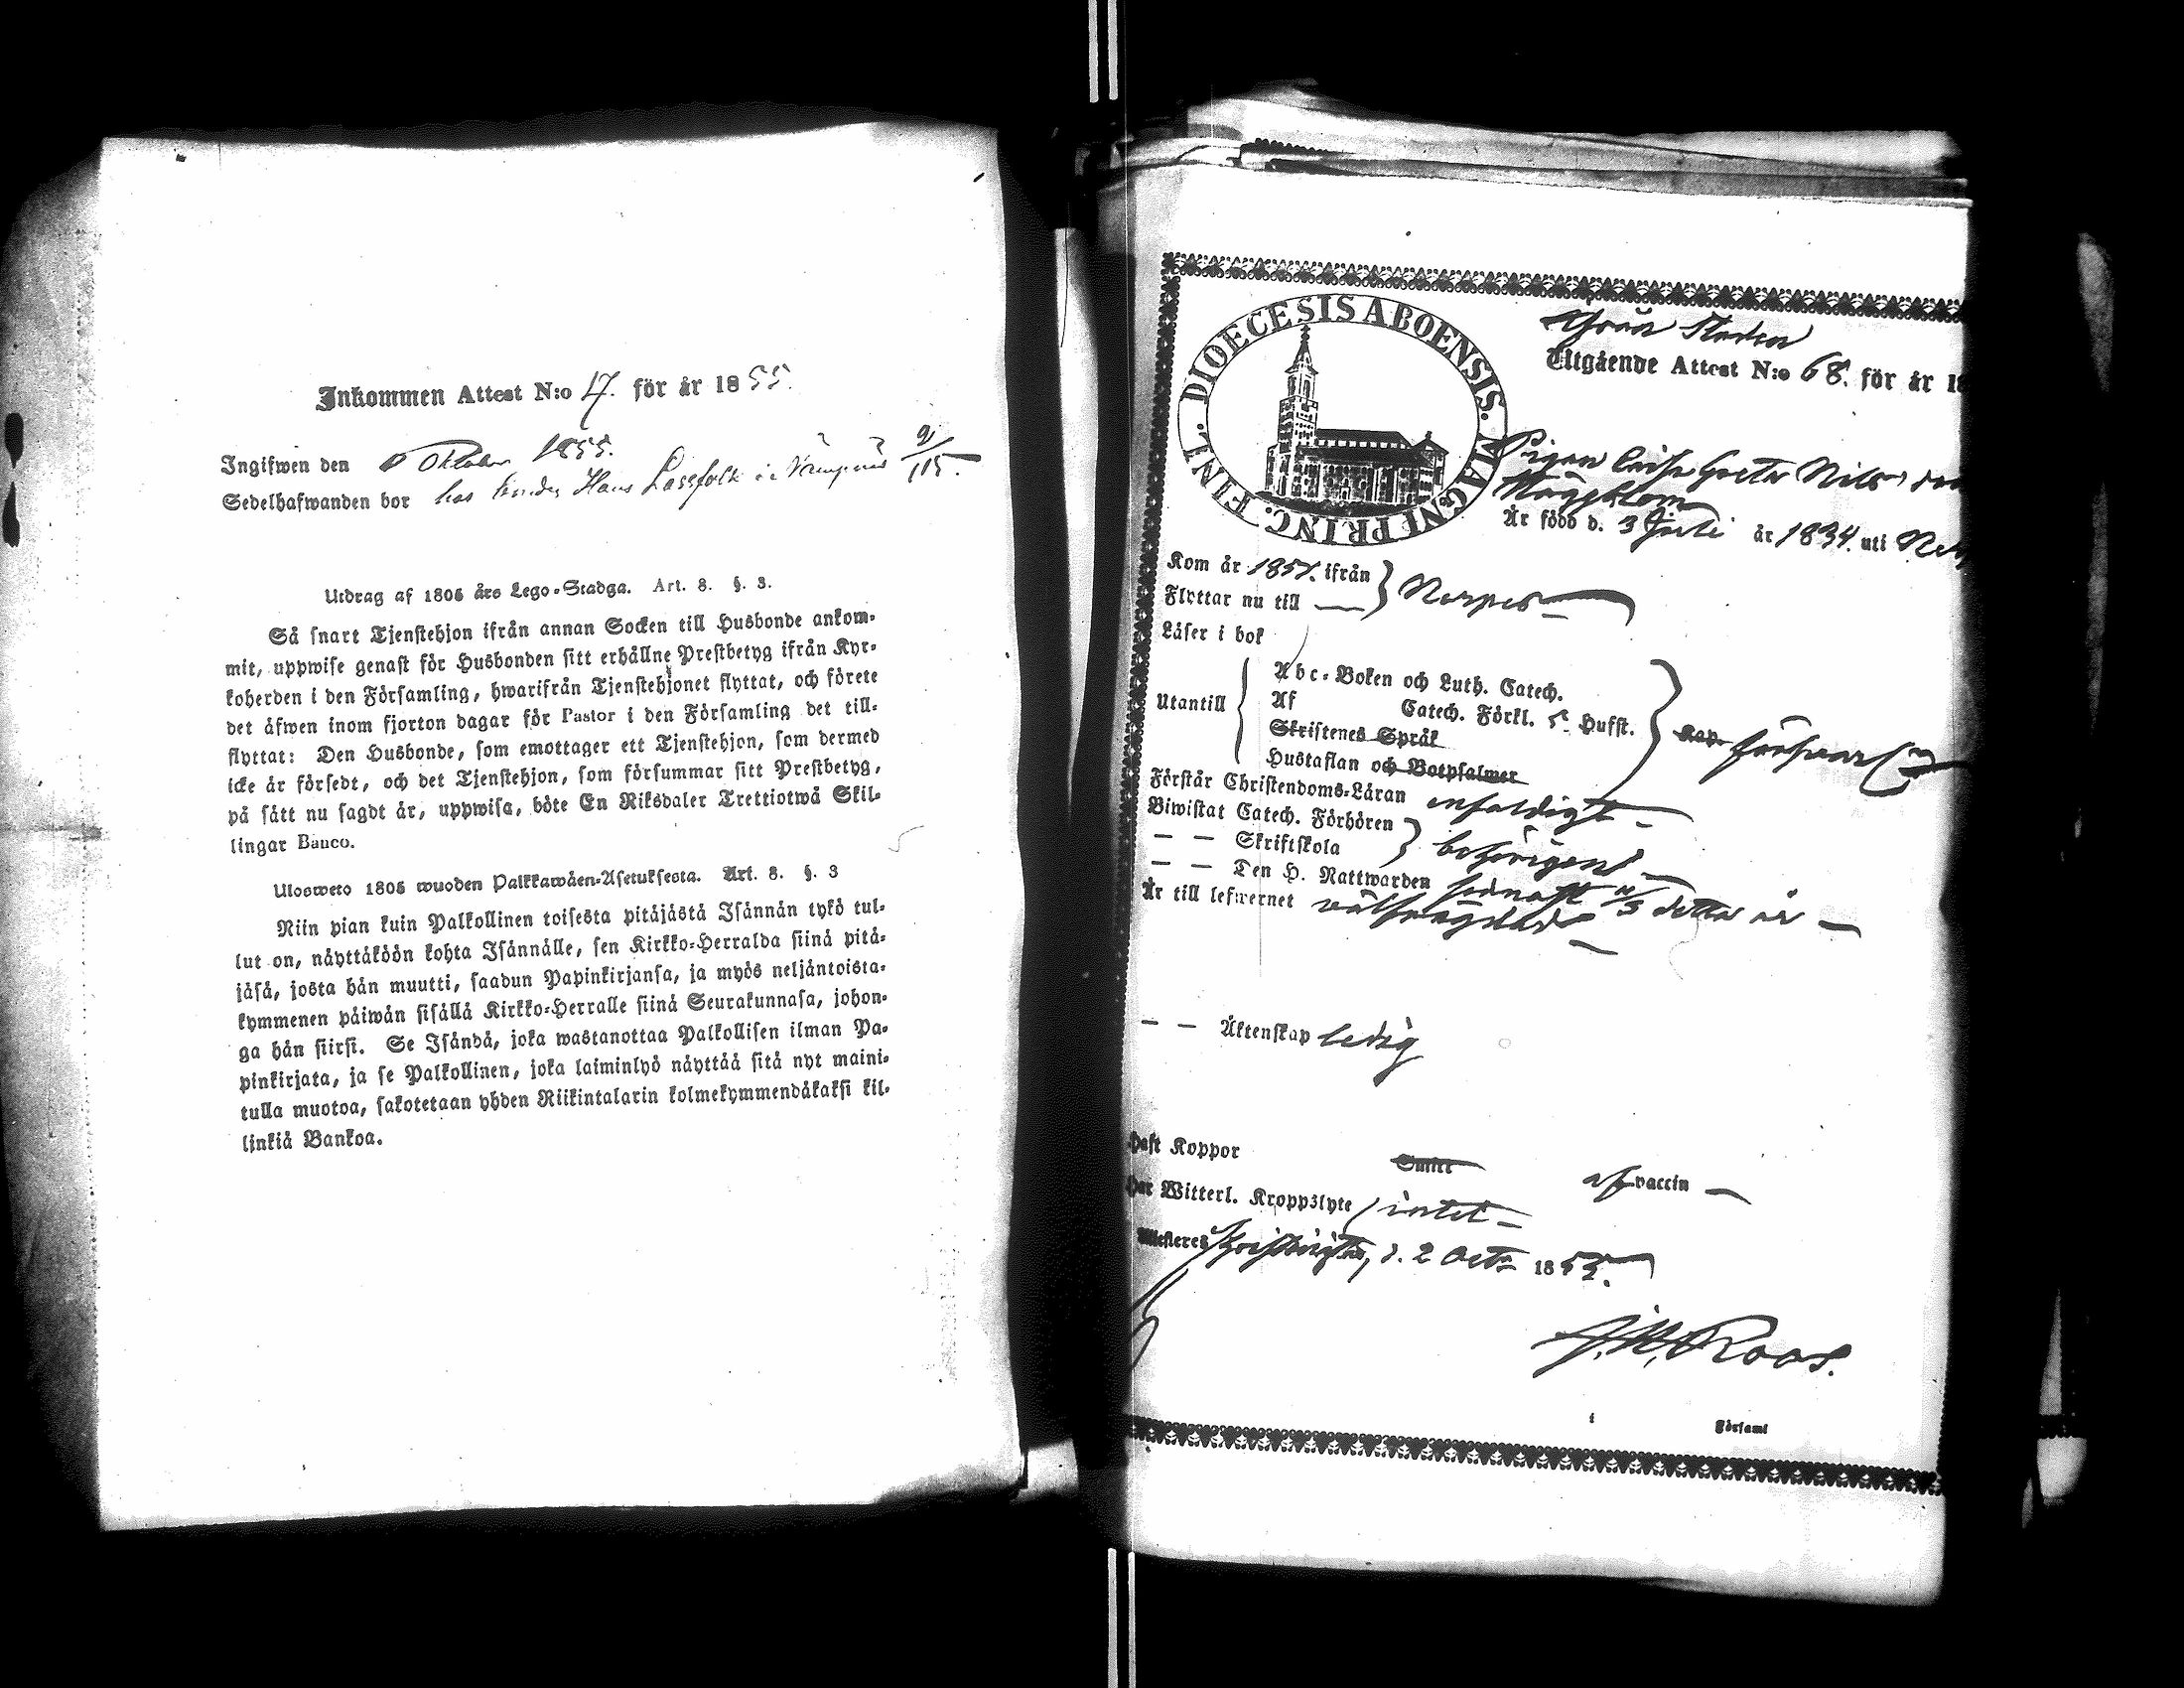 Inkommen Attest N:o 17. för år 1855.
Ingifwen den Oktober 1855.
Sedelhafwanden bor hos bonden Hans Lassfolk i 9/115.
Utdrag af 1805 års Lego-Stadga. Art. 8. §. 3.
Så snart Tjenstehjon ifrån annan Socken till Husbonde ankom-
mit, uppwise genast för Husbonden sitt erhållne Prestbetyg ifrån Kyr-
koherden i den Församling, hwarifrån Tjenstehjonet flyttat, och förete
det äfwen inom fjorton dagar för Pastor i den Församling det till-
flyttat: Den Husbonde, som emottager ett Tjenstehjon, som dermed
icke är försedt, och det Tjenstehjon, som försummar sitt Prestbetyg,
på sätt nu sagdt är, uppwisa, böte En Riksdaler Trettiotwå Skil-
lingar Banco.
Ulosweto 1805 wuoden Palkkawäen-Asetuksesta. Art. 8. §. 3
Niin pian kuin Palkollinen toisesta pitäjästä Isännän tykö tul-
lut on, näyttäköön kohta Isännälle, sen Kirkko-Herralda siinä pitä-
jäsä, josta hän muutti, saadun Papinkirjansa, ja myös neljäntoista-
kymmenen päiwän sisällä Kirkko-Herralle siinä Seurakunnasa, johon-
ga hän siirsi. Se Isändä, joka wastanottaa Palkollisen ilman Pa-
pinkirjata, ja se Palkollinen, joka laiminlyö näyttää sitä nyt maini-
tulla muotoa, sakotetaan yhden Riikintalarin kolmekymmendäkaksi kil-
linkiä Bankoa.
DIOECESIS ABOENSIS. MAGNI PRINC. FINL.
Från Staden
Utgående Attest N:o 68. för år 1
Pigan Caisa Greta Nils
Häggblom
Är född d. 3 Juli år 1834. uti
Kom år 1851. ifrån
Flyttar nu till — Nerpes
Läser i bok
Utantill
Abc-Boken och Luth. Catech.
Af Catech. Förkl. 5 Hufst.
Skriftenes Språk
Hustaflan och Botpsalmer
Kap. försvarl
Förstår Christendoms-Läran enfaldigt
Biwistat Catech. Förhören
— — Skriftskola behörigen
— — Den H. Nattwarden sednast detta år —
Är till lefwernet välfrägdad
— — Äktenskap ledig
Haft Koppor Smitt af vaccin —
Har Witterl. Kroppslyte intet
Attesteres Kristinestad, d. 2 Octr 1855.
Roos.
i Församl